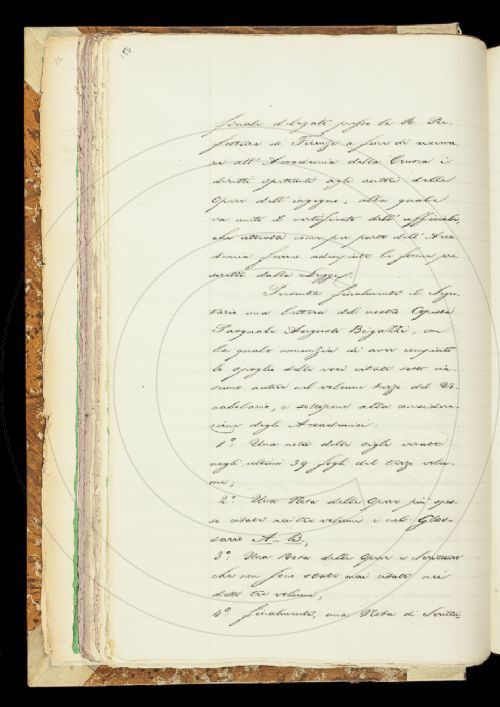 154
ficiale delegato presso la R. Pre-
fettura di Firenze a fine di riserva-
re all' Accademia della Crusca i
diritti spettanti agli autori delle
Opere dell' ingegno; alla quale
va unito il certificato dell' officiale,
che attesta come per parte dell' Acca-
demia furono adempiute le forme pre-
scritte dalla Legge.
Presenta finalmente il Segre-
tario una lettera del nostro Copista
Pasquale Augusto Bigazzi, con
la quale annunzia di aver compiuto
lo spoglio delle voci citate sotto cia-
scuno autore nel volume terzo del Vo-
cabolario, e sottopone alla considera-
zione degli Accademici:
1.° Una nota delle sigle errate
negli ultimi 39 fogli del terzo volu-
me;
2.° Una Nota delle Opere più spes-
so citate nei tre volumi e nel Glos-
sario A-B;
3.° Una Nota delle Opere e Scritture
che non sono state mai citate nei
detti tre volumi;
4.° finalmente, una Nota di Scritti